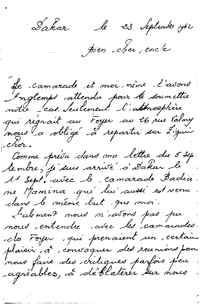 Dakar le 23 Septembre 1962
Mon cher oncle
Le camarade et moi même t'avons
longtemps attendu pour te soumettre
notre cas seulement l'atmosphère
qui régnait au Foyer au 26 rue
nous a obligé à repartir sur
Comme prévu dans ma lettre du 5 sep
tembre, je suis arrivé à Dakar le
11 Sept. avec le camarade Badia
ne Mamina qui lui aussi est venu
dans le même but que moi.
nous n'avons pas pu
nous entendre avec les camarades
du Foyer qui prenaient un certain
plaisir à convoquer des reunions pour
nous faire des critiques parfois peu
agréables, et déblatérer sur nous